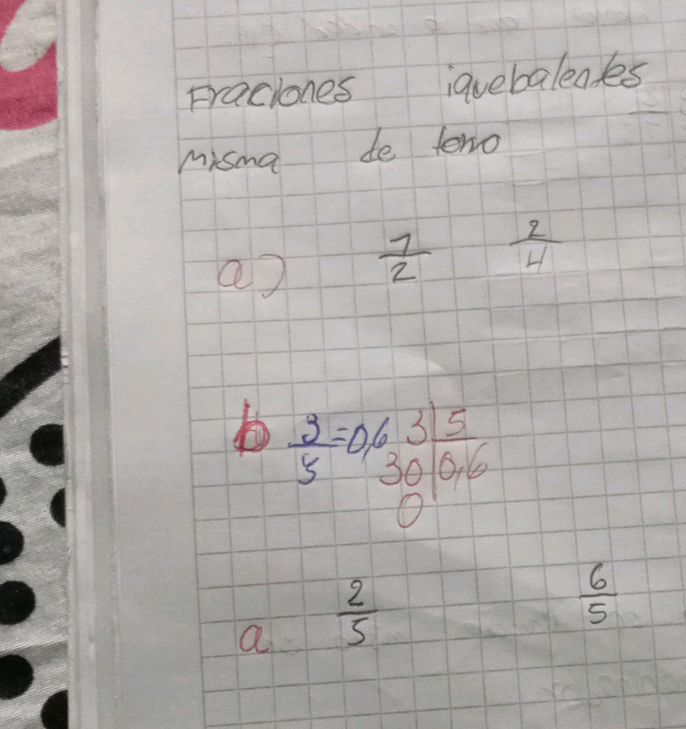 Fraciones iquebalentes
misma de temo
a) 1/2 2/4
b 3/5 = 0,6 3 | 5
30 | 0,6
0
a 2/5 6/5